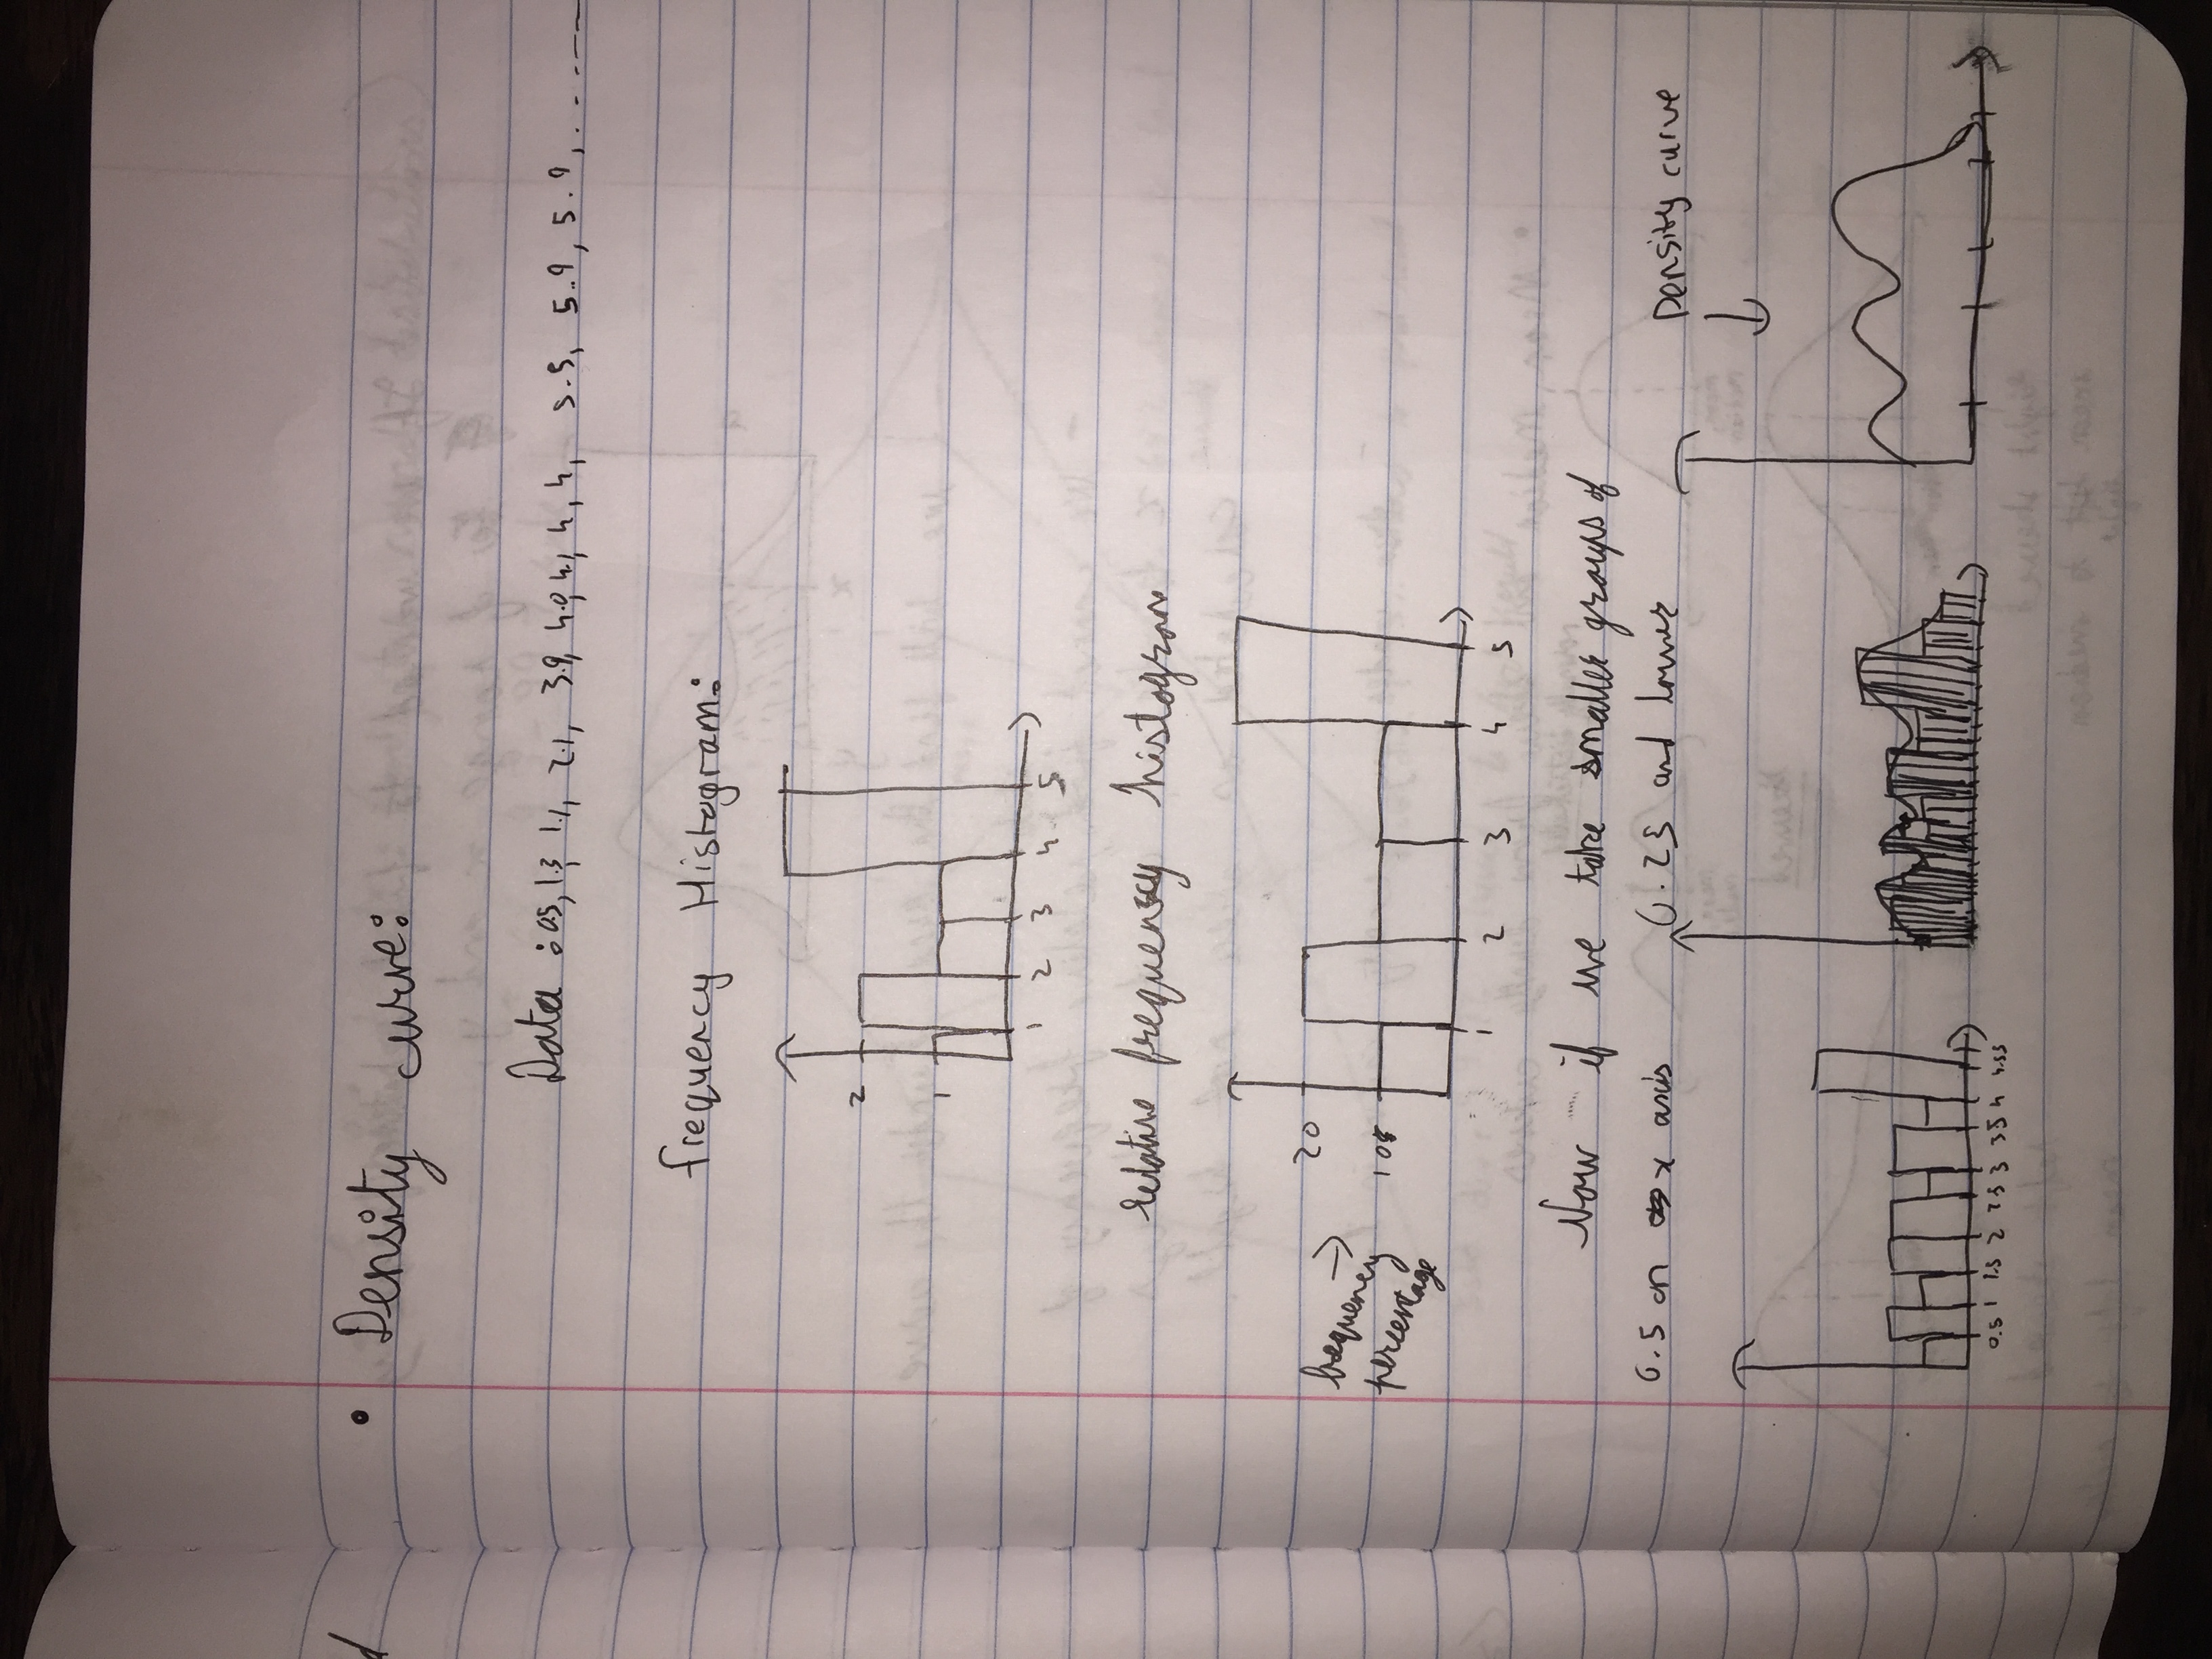 • Density curve:
Data : 0.5, 1.3, 1.1, 2.1, 3.9, 4.0, 4.1, 4, 4, 5.5, 5.9, 5.9, ........
frequency Histogram:
2
1
1 2 3 4 5
relative frequency histogram
20
frequency →
percentage
10
1 2 3 4 5
Now if we take smaller groups of
0.5 on x axis 0.25 and lower
Density curve
0.5 1 1.5 2 2.5 3 3.5 4 4.5 5